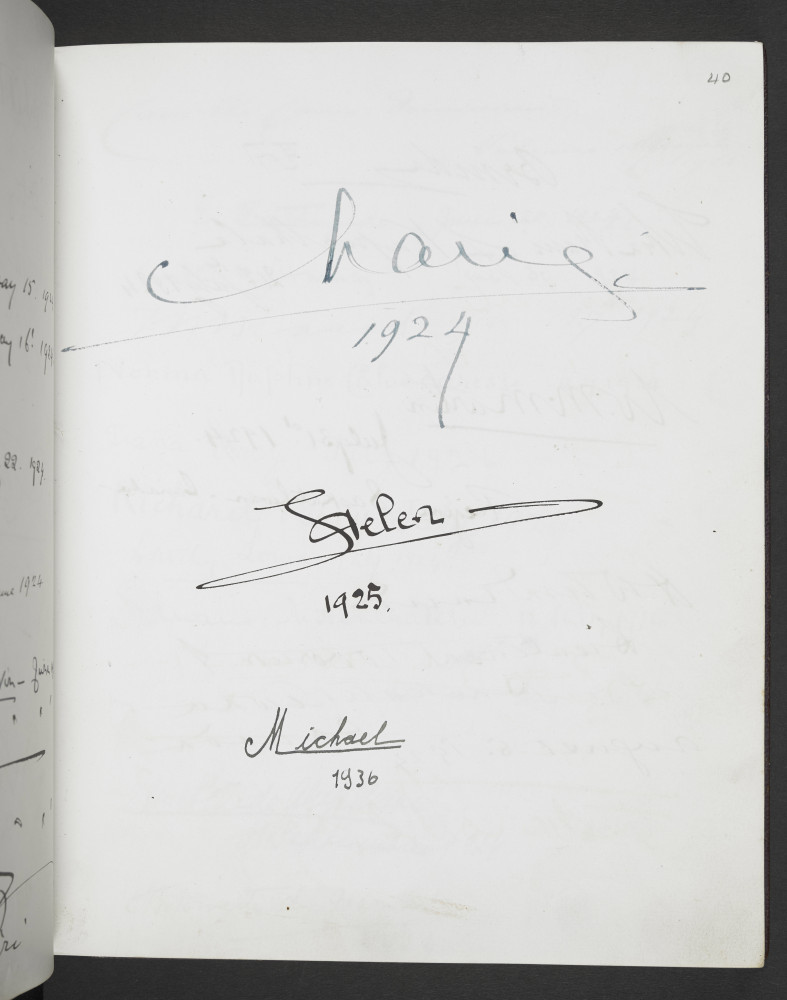 40
Charig
1924
Helen
1925.
Michael
1936
ay 15. 192
ay 16t 192
22. 1924
1924